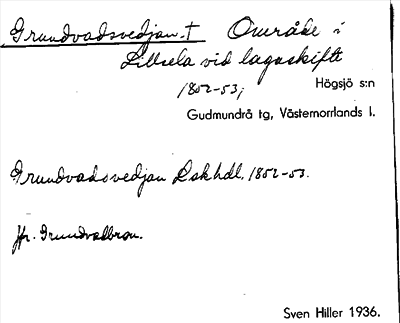 Grundvadsvedjan.† Område i
Lillsela vid lagaskifte
1852-53;
Högsjö s:n
Gudmundrå tg, Västernorrlands l.
Grundvadsvedjan Lskhdl, 1852-53.
Jfr. Grundvadbron.
Sven Hiller 1936.